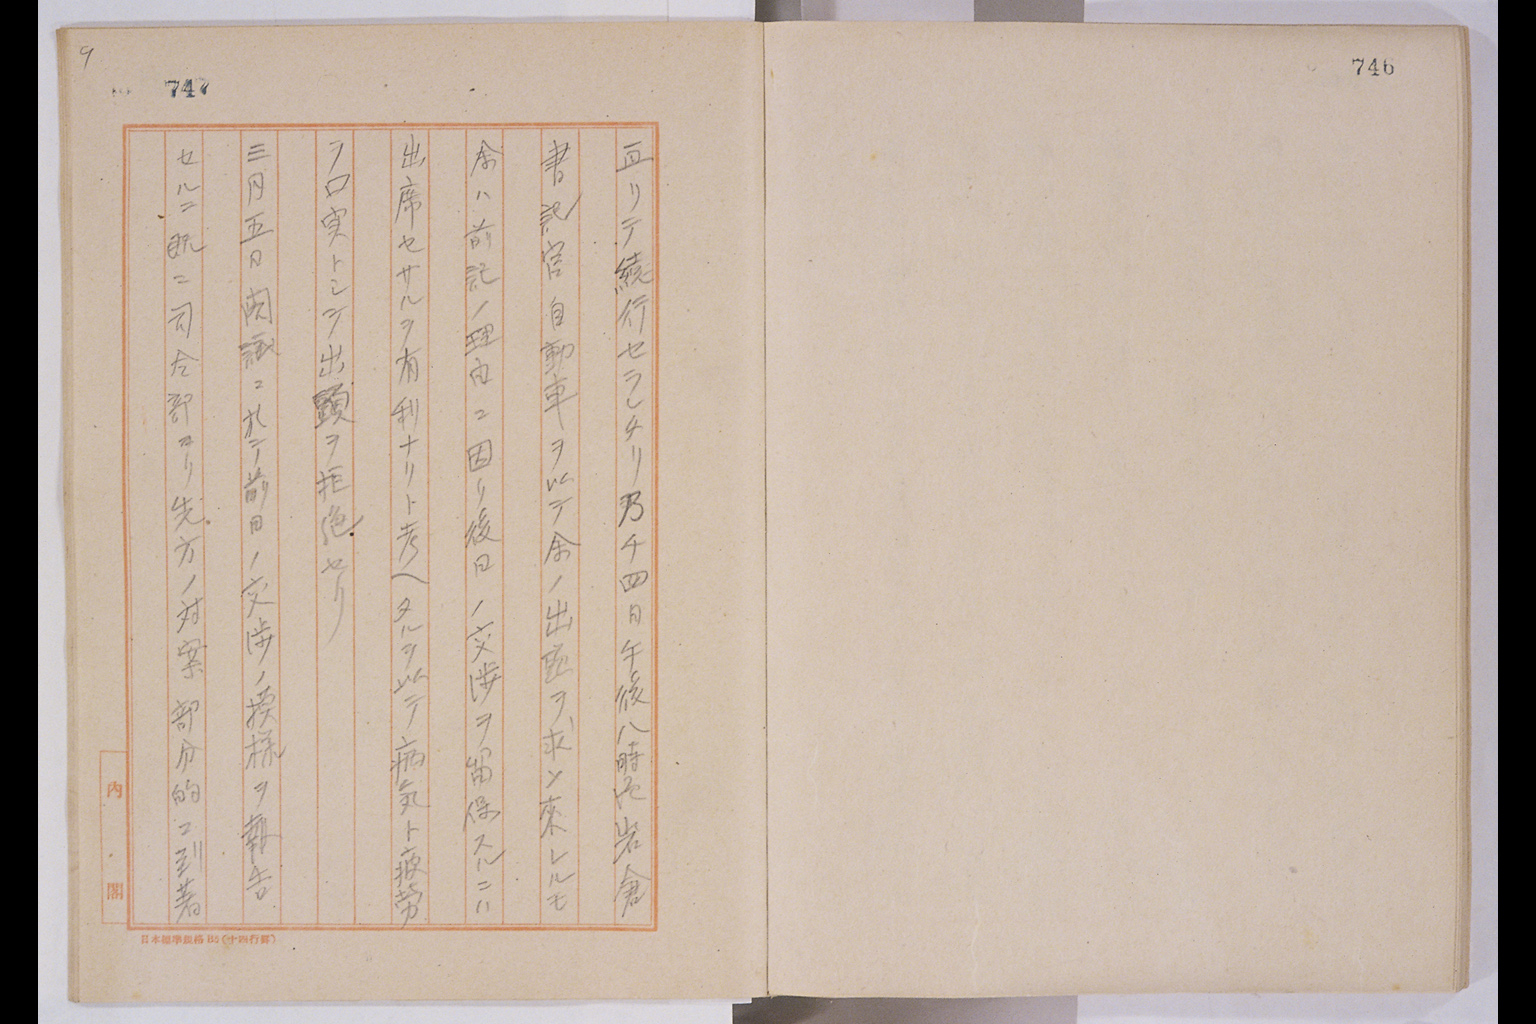 746
9
747
亘リテ続行セラレタリ乃チ四日午後八時半岩倉
書記官自動車ヲ以テ余ノ出頭ヲ求メ来レルモ
余ハ前記ノ理由ニ因リ後日ノ交渉ヲ留保スルニハ
出席セサルヲ有利ナリト考ヘタルヲ以テ病気ト疲労
ヲ口実トシテ出頭ヲ拒絶セリ
三月五日閣議ニ於テ前日ノ交渉ノ模様ヲ報告
セルニ既ニ司令部ヨリ先方ノ対案部分的ニ到著
内閣
日本標準規格B5(十四行罫)